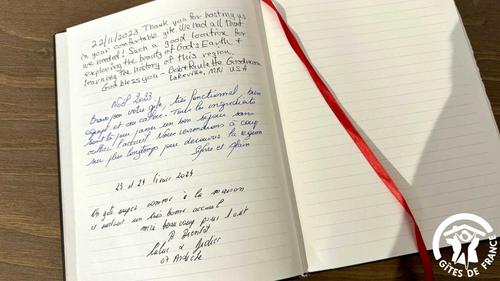 22/11/2023 Thank you for hosting us
in your comfortable gite. We had all that
we needed! Such a good location for
exploring the beauty of God's Earth +
learning the history of this region.
God bless you - Bob & Paulette Goodman
Lakeville, MN USA
Noël 2023
Bravo pour votre gîte, très fonctionnel, bien
équipé et au calme. Tous les ingrédients
sont là pour passer un bon séjour sans
oublier l'accueil. Nous reviendrons à coup
sûr plus longtemps pour découvrir la région
et
23 et 24 février 2024
Un gîte super comme à la maison
et surtout un très bonne accueil
merci beaucoup pour tout
A Bientôt
Didier
07 Ardèche
GÎTES DE FRANCE